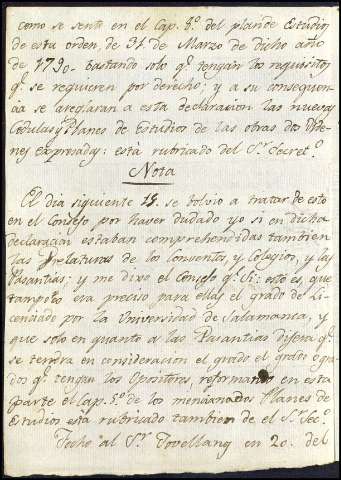 como se sento en el Cap. 5º. del plan de Estudios
de esta orden de 31 de Marzo de dicho año
de 1790- bastando solo qe. tengan los requisitos
qe. se requieren por derecho; y a su consequen
cia se areglaran a esta declaracion las nuevas
Cedulas y Planes de Estudios de las otras dos Orde
nes Expresadas: está rubricado del Sr. Secreto.
Nota
El dia siguiente 15. se bolvio a tratar de esto
en el Consejo por haver dudado yo si en dicha
declaracion estaban comprehendidas tambien
las Prelaturas de los Conventos, y Colegios, y las
Pasantias; y me dixo el Consejo qe. Si: esto es, que
tampoco era preciso para ellas el grado de Li
cenciado por la Universidad de Salamanca, y
que solo en quanto a las Pasantias dijera qe.
se tendra en consideracion el grado el grado o gra
dos qe. tengan los Opositores, reformando en esta
parte el Cap. 5º. de los mencionados Planes de
Estudios esta rubricado tambien de el Sr. Seco.
Fecho al Sr. Jovellans en 20. del